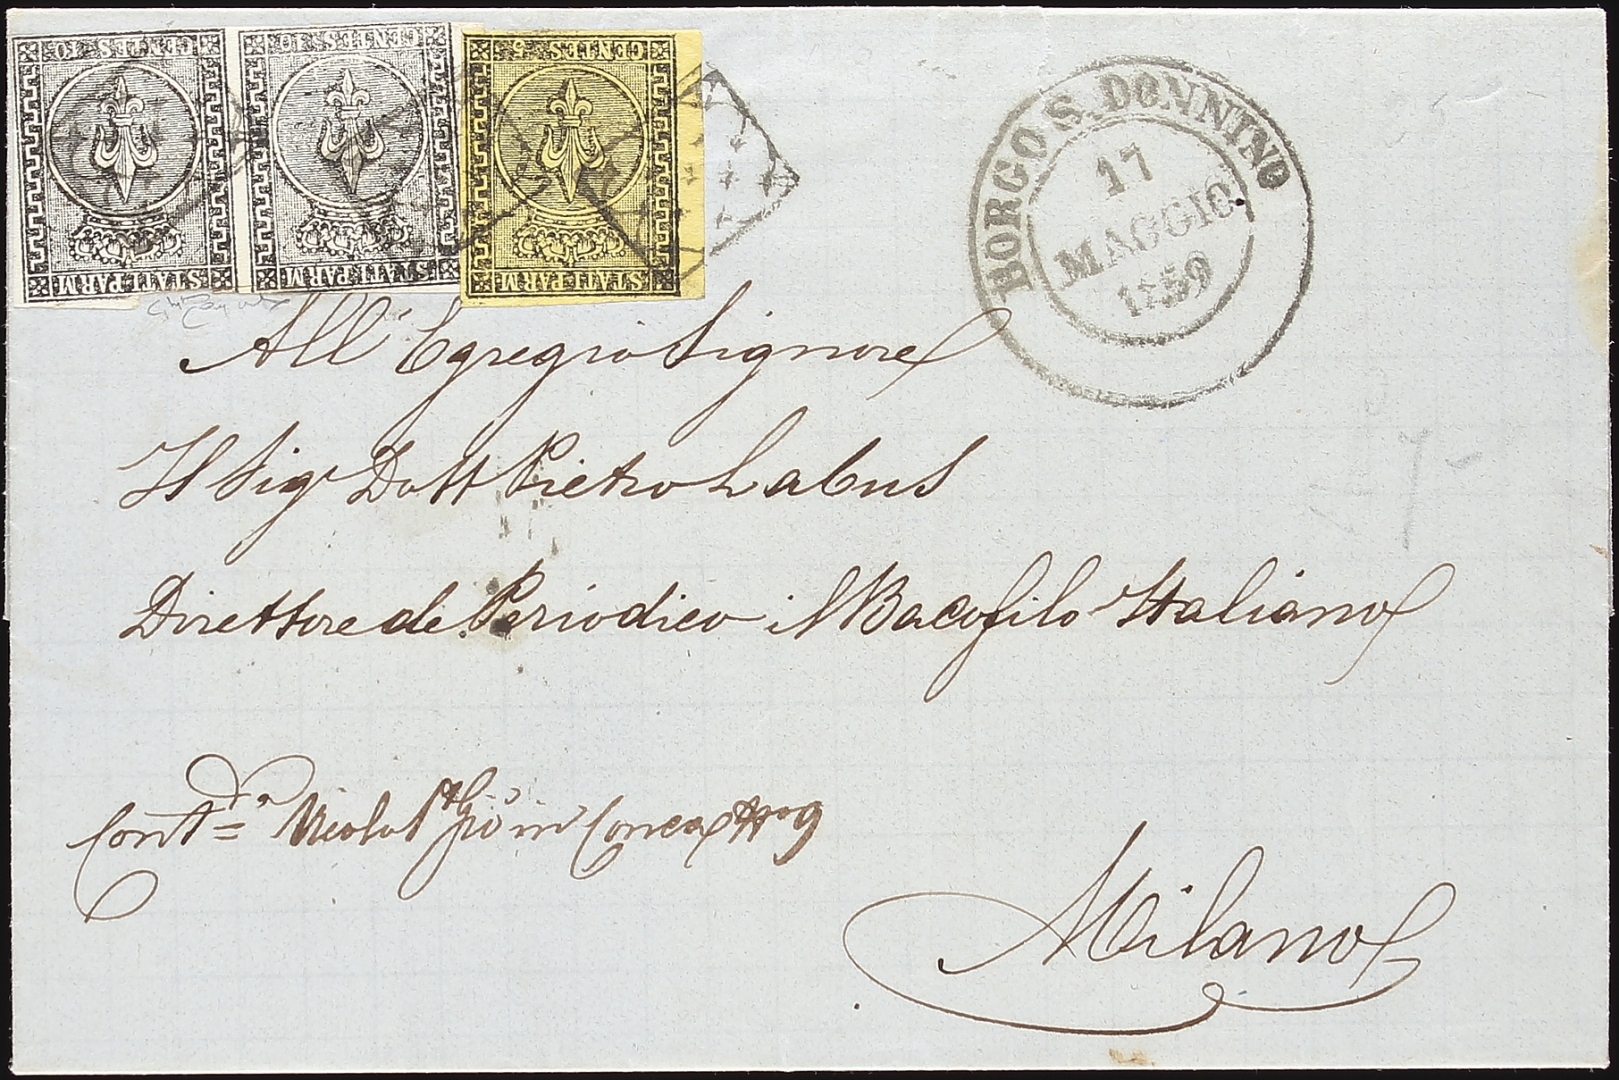 CENTES 10
STATI PARM
CENTES 10
STATI PARM
CENTES 5
STATI PARM
BORGO S. DONNINO
17
MAGGIO
1859
All'Egregio Signore
Il Sigr Dott Pietro Labus
Direttore de Periodico il Bacofilo Italiano
Contda in
Milano